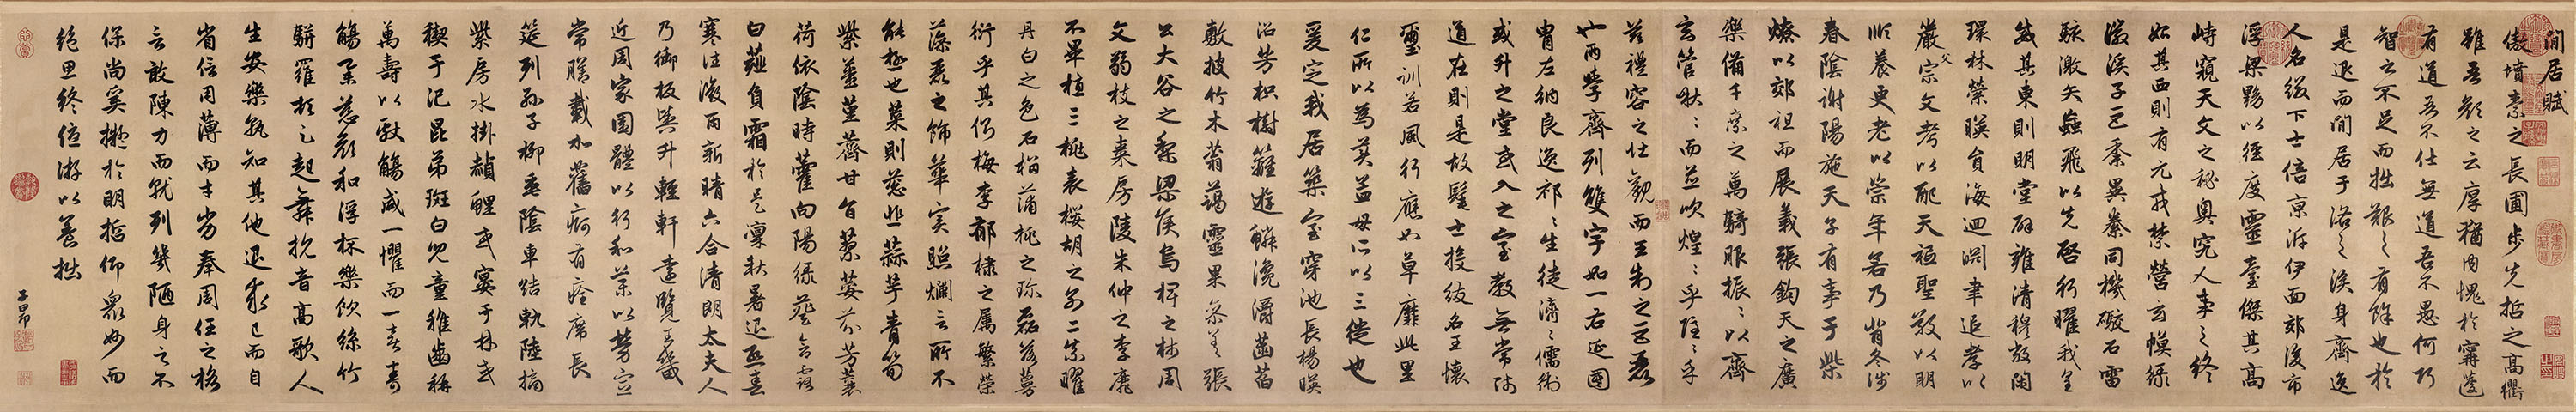 閒居賦
傲墳素之長圃步先哲之高衢
雖吾顏之云厚猶內愧於甯蘧
有道吾不仕無道吾不愚何巧
智之不足而拙艱之有餘也於
是退而閒居于洛之涘身齊逸
人名綴下士倍京泝伊面郊後市
浮梁黝以徑度靈臺傑其高
峙窺天文之秘奧究人事之終
始其西則有元戎禁營玄幙綠
徽谿子巨黍異絭同機礮石雷
駭激矢蝱飛以先啓行曜我皇
威其東則明堂辟雍清穆敞閑
環林縈暎員海迴淵聿追孝以
嚴父宗文考以配天祗聖敬以明
順養更老以崇年若乃背冬涉
春陰謝陽施天子有事于柴
燎以郊祖而展義張鈞天之廣
樂備千乘之萬騎服振〻以齊
玄管啾〻而並吹煌〻乎隱〻乎
茲禮容之壯觀而王制之巨麗
也兩學齊列雙宇如一右延國
胄左納良逸祁〻生徒濟〻儒術
或升之堂或入之室教無常師
道在則是故髦士投紱名王懷
璽訓若風行應如草靡此里
仁所以為美孟母所以三徙也
爰定我居築室穿池長楊暎
沼芳枳樹籬遊鱗瀺灂菡萏
敷披竹木蓊藹靈果參差張
公大谷之梨梁侯烏椑之柿周
文弱枝之棗房陵朱仲之李靡
不畢植三桃表櫻胡之別二柰曜
丹白之色石榴蒲桃之珍磊落蔓
衍乎其側梅李郁棣之屬繁榮
藻麗之飾華實照爛言所不
能極也菜則蔥韭蒜芋青筍
紫薑堇薺甘旨蓼荾芬芳蘘
荷依陰時藿向陽綠葵含露
白薤負霜於是凜秋暑退熙春
寒往微雨新晴六合清朗太夫人
乃御板輿升輕軒遠覽王畿
近周家園體以行和藥以勞宣
常膳載加舊痾有痊席長
筵列孫子柳垂陰車結軌陸摘
紫房水掛赬鯉或宴于林或
禊于汜昆弟斑白兒童稚齒稱
萬壽以獻觴咸一懼而一喜壽
觴舉慈顏和浮杯樂飲絲竹
駢羅頓足起舞抗音高歌人
生安樂孰知其他退求己而自
省信用薄而才劣奉周任之格
言敢陳力而就列幾陋身之不
保尚奚擬於明哲仰衆妙而
絕思終優游以養拙
子昂